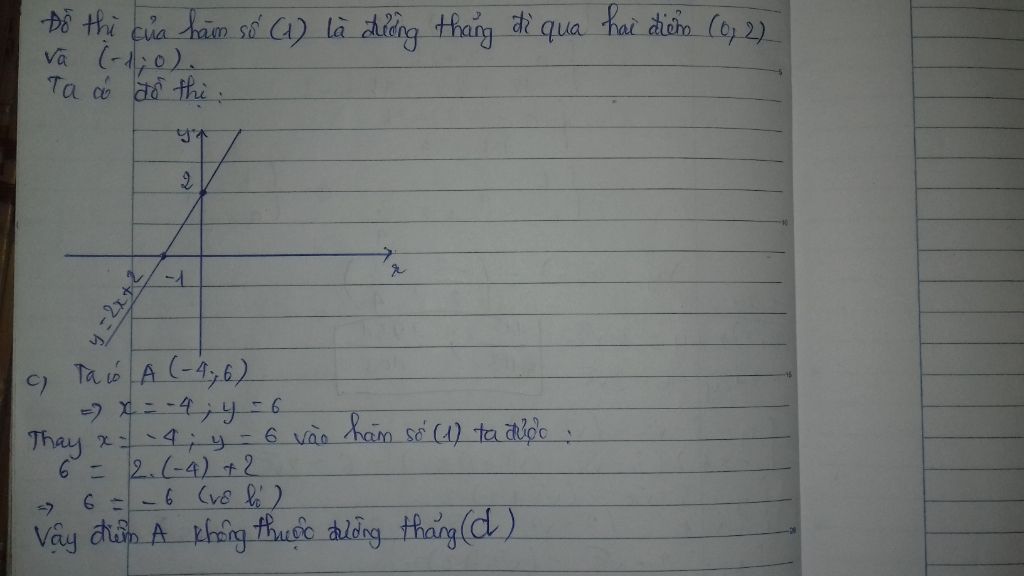 Đồ thị của hàm số (1) là đường thẳng đi qua hai điểm (0,2)
và (-1;0).
Ta có đồ thị:
y
2
x
-1
y = 2x + 2
c) Ta có A (-4;6)
=> x = -4 ; y = 6
Thay x = -4 ; y = 6 vào hàm số (1) ta được :
6 = 2.(-4) + 2
=> 6 = -6 (vô lí)
Vậy điểm A không thuộc đường thẳng (d)